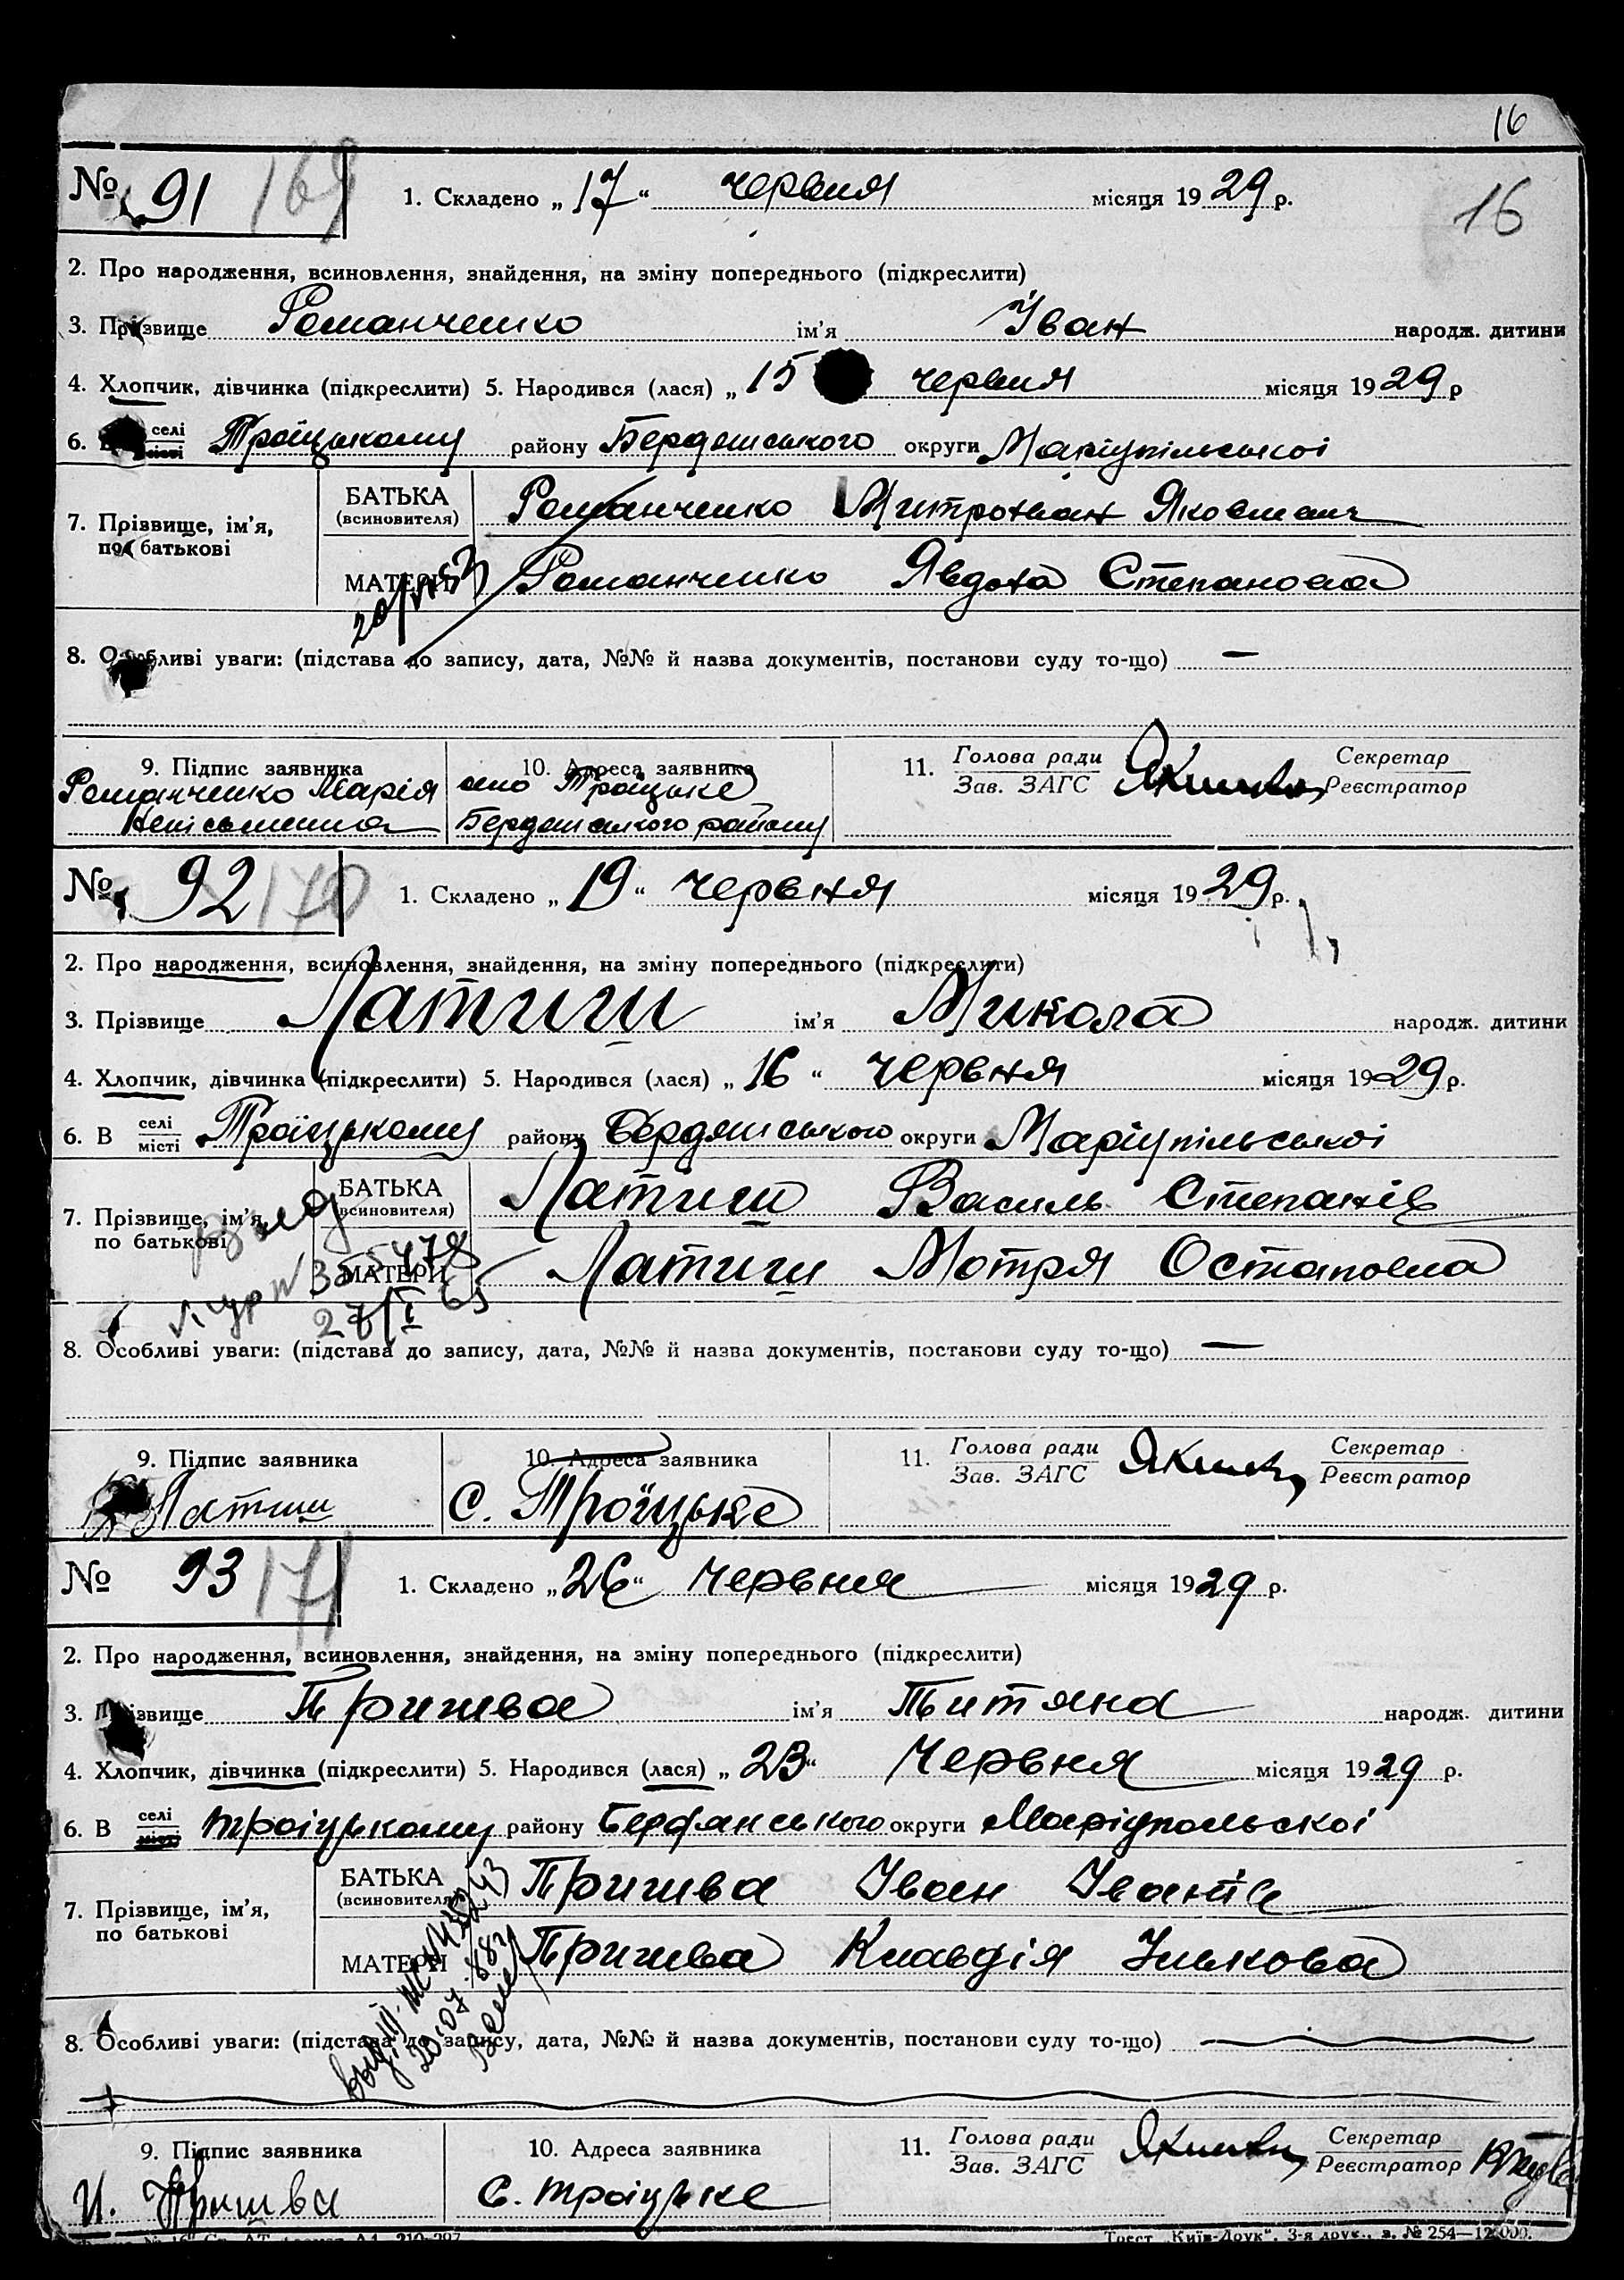 16
№ 91 169 1. Складено „17“ червня місяця 1929 р. 16
2. Про народження, всиновлення, знайдення, на зміну попереднього (підкреслити)
3. Прізвище Романченко ім'я Іван народж. дитини
4. Хлопчик, дівчинка (підкреслити) 5. Народився (лася) „15 червня місяця 1929 р
6. селі Троїцькому району Бердянського округи Маріупільської
БАТЬКА (всиновителя) Романченко Митрофан Якович
7. Прізвище, ім'я, по батькові
МАТЕРИ Романченко Явдоха Степановна
8. Особливі уваги: (підстава до запису, дата, №№ й назва документів, постанови суду то-що) —
9. Підпис заявника 10. Адреса заявника 11. Голова ради Зав. ЗАГС Секретар Реєстратор
Романченко Марія село Троїцьке
Неписьменна Бердянського району
№ 92 170 1. Складено „19“ червня місяця 1929 р.
2. Про народження, всиновлення, знайдення, на зміну попереднього (підкреслити)
3. Прізвище Латиш ім'я Микола народж. дитини
4. Хлопчик, дівчинка (підкреслити) 5. Народився (лася) „16“ червня місяця 1929 р.
6. В селі місті Троїцькому району Бердянського округи Маріупільської
БАТЬКА (всиновителя) Латиш Василь Степанів
7. Прізвище, ім'я, по батькові
МАТЕРИ Латиш Мотря Остаповна
8. Особливі уваги: (підстава до запису, дата, №№ й назва документів, постанови суду то-що) —
9. Підпис заявника 10. Адреса заявника 11. Голова ради Зав. ЗАГС Секретар Реєстратор
Латиш с. Троїцьке
№ 93 171 1. Складено „26“ Червня місяця 1929 р.
2. Про народження, всиновлення, знайдення, на зміну попереднього (підкреслити)
3. Прізвище Пришва ім'я Титяна народж. дитини
4. Хлопчик, дівчинка (підкреслити) 5. Народився (лася) „23“ Червня місяця 1929 р.
6. В селі Троіцькому району Бердянського округи Маріупольскоі
БАТЬКА (всиновителя) Пришва Іван Іванів
7. Прізвище, ім'я, по батькові
МАТЕРИ Пришва Клавдія Илькова
8. Особливі уваги: (підстава до запису, дата, №№ й назва документів, постанови суду то-що)
9. Підпис заявника 10. Адреса заявника 11. Голова ради Зав. ЗАГС Секретар Реєстратор
И. Пришва с. Троіцьке
Трест „Київ-Друк“, 3-я друк., з. № 254—12.000.